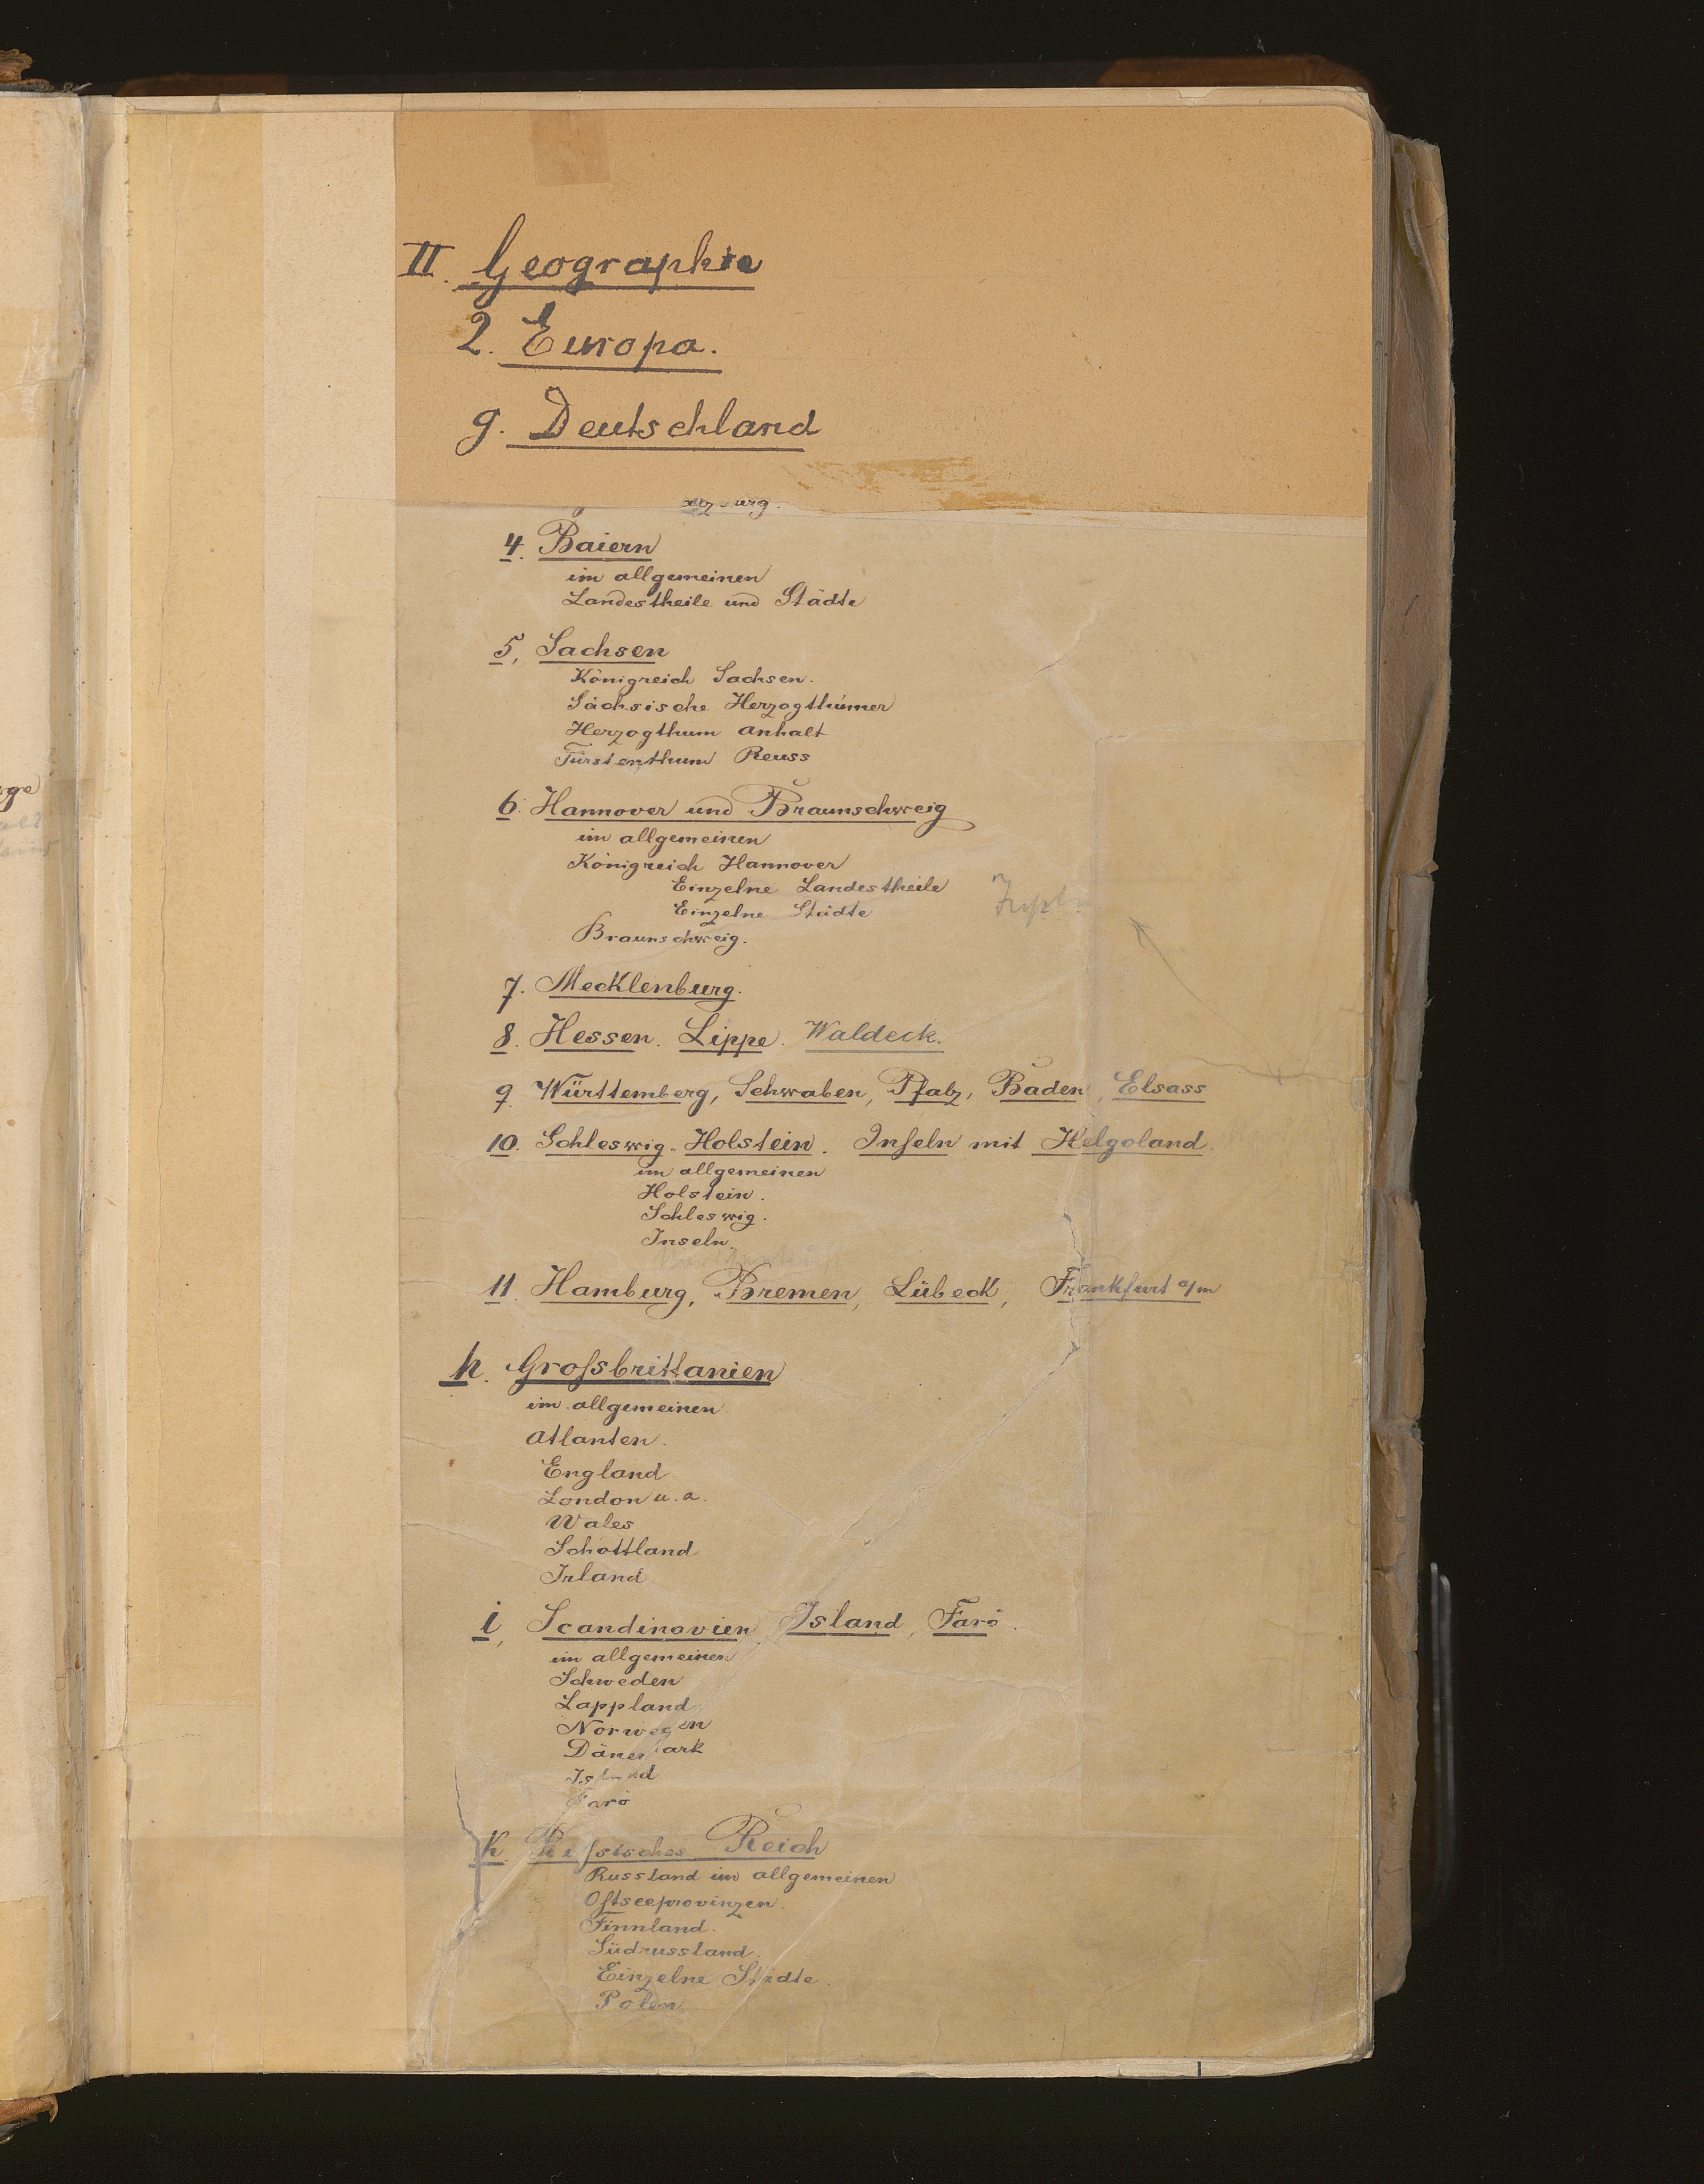 II. Geographie
2. Europa.
g. Deutschland
4. Baiern
im allgemeinen
Landestheile und Städte
5, Sachsen
Königreich Sachsen.
Sächsische Herzogthümer
Herzogthum Anhalt
Fürstenthum Reuss
6. Hannover und Braunschweig
im allgemeinen
Königreich Hannover
Einzelne Landestheile
Einzelne Städte
Braunschweig.
7. Mecklenburg.
8. Hessen. Lippe. Waldeck.
9. Württemberg, Schwaben, Pfalz, Baden, Elsass
10. Schleswig-Holstein. Inseln mit Helgoland.
im allgemeinen
Holstein.
Schleswig.
Inseln.
11. Hamburg, Bremen, Lübeck, Frankfurt a/m
h. Groſsbrittanien
im allgemeinen
Atlanten.
England
London u. a.
Wales
Schottland
Irland
i, Scandinavien, Island, Farö.
im allgemeinen
Schweden
Lappland
Norwegen
Dänemark
Island
Farö
k. Ruſsisches Reich
Russland im allgemeinen
Oſtseeprovinzen.
Finnland.
Südrussland.
Einzelne Städte.
Polen.